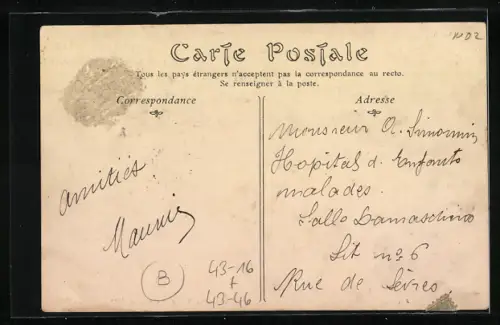 ND2
Carte Postale
Tous les pays étrangers n'acceptent pas la correspondance au recto.
Se renseigner à la poste.
Correspondance
Adresse
Amitiés.
Monsieur A. Simonnin
Hopital d. Enfants
malades.
Salle
Lit nº 6
Rue de Sèvres.
B
43-16
+
43-46